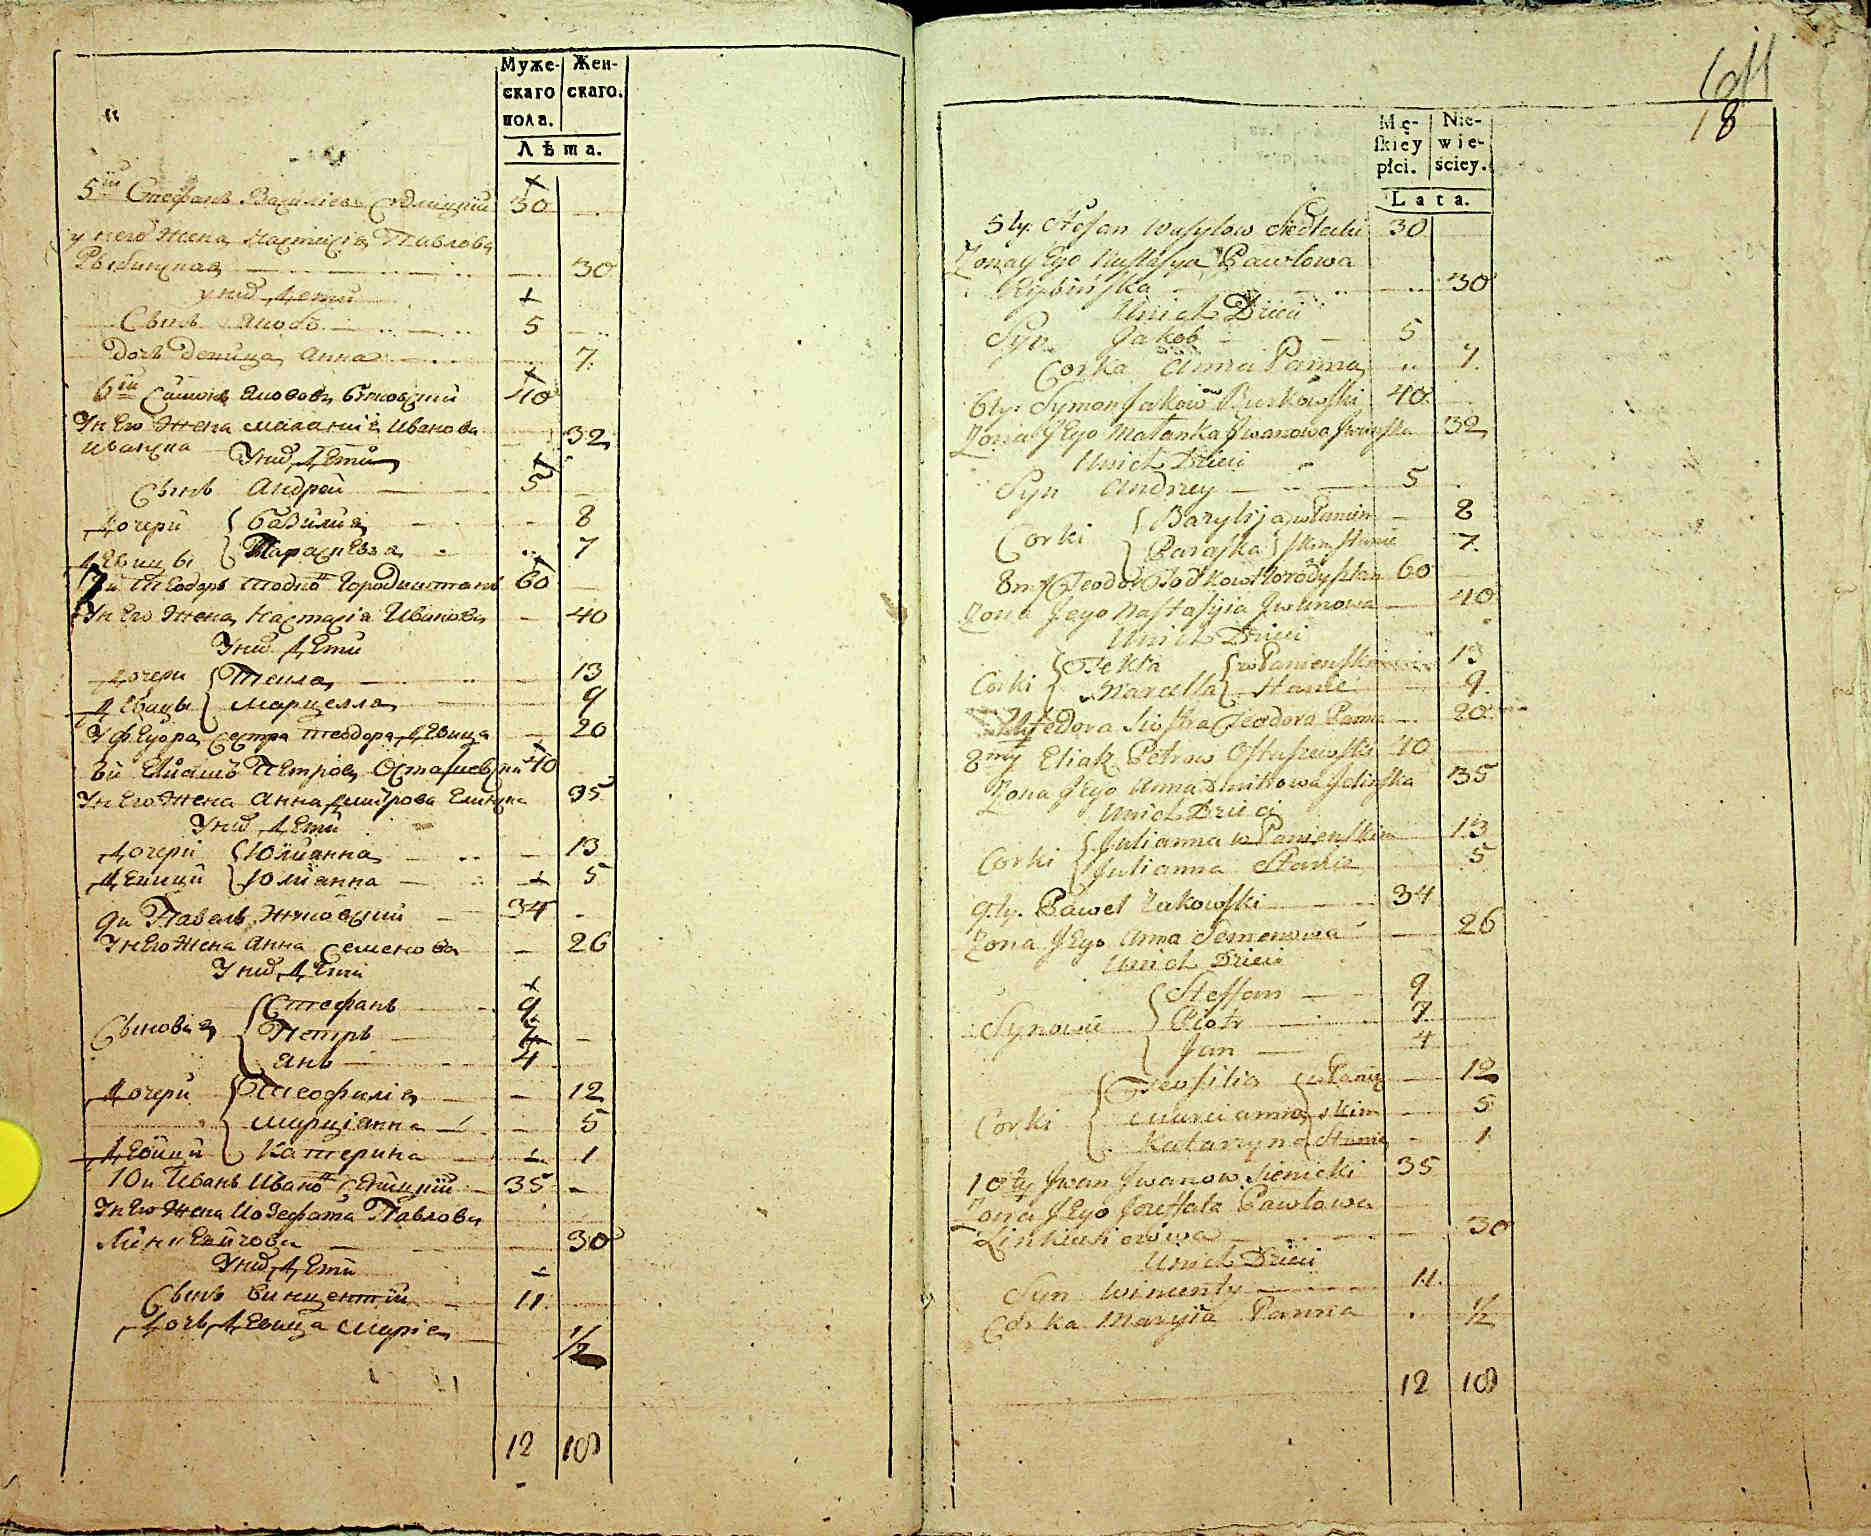 Муже-
скаго
пола.
Жен-
скаго.
Лѣта.
5й Стефанъ Василіевъ Седлицкій 30
у него жена Настасіа Павлова
Рыбинская 30
у нихъ дети
Сынъ Якобъ 5
дочь девица Анна 7
6й Симонъ Яковов 40
У него Жена Маланіа Иванова 32
Иваицка
У нихъ Дети
Сынъ Андрей 5
Дочери Базилиа 8
Девицы Параскева 7
7й Теодоръ Городиштанъ 60
У него Жена Настасіа Иванова 40
У нихъ Дети
Дочери Текла 13
Девицы Марцелла 9
У Феудора Сестра Теодора Девица 20
8й Елиашъ Петровъ Осташевски 40
У него Жена Анна Дмитрова Елинска 35
У нихъ Дети
Дочери Юлианна 13
Девици Юлианна 5
9й Павелъ Жуковский 34
У него Жена Анна Семенова 26
У нихъ Дети
Сыновиа Стефанъ 9
Петръ 7
Янъ 4
Дочери Теофилиа 12
Марціанна 5
Девици Катерина 1
10й Иванъ Ивановъ 35
У него Жена Иозефата Павлова
30
У нихъ Дети
Сынъ Винцентій 11
Дочь Девица Мариа 1/2
12 18
18
Mę-
skiey
płci.
Nie-
wie-
ściey.
Lata.
5ty. Stefan Wasylow Siedlecki 30
Zona Jego Nastasya Pawłowa
Rybińska 30
U nich Dzieci
Syn Jakob 5
Corka Anna Panna 7
6ty. Symon Jakow 40
Zona Jego Małanka Jwanowa 32
U nich Dzieci
Syn Andrzey 5
Corki Bazylija w Panien 8
Paraska skim stanie 7
Teodor Horodysztan 60
Zona Jego Nastasyia Jwanowa 40
U nich Dzieci
Corki Tekla w Panienskim 13
Marcella Stanie 9
Siostra Teodora Panna 20
8my Eliasz Petrow Ostaszewski 40
Zona Jego Anna Dmitrowa Jelinska 35
U nich Dzieci
Corki Julianna w Panienskim 13
Julianna Stanie 5
9ty. Paweł Zukowski 34
Zona Jego Anna Semenowa 26
U nich Dzieci
Synowie Steffan 9
Piotr 7
Jan 4
Corki Teofilia w Panien 12
Marcianna skim 5
Katarzyna Stanie 1
10ty Jwan Jwanow Sienicki 35
Zona Jego Jozefata Pawłowa
30
U nich Dzieci
Syn Wincenty 11
Corka Maryia Panna 1/2
12 18